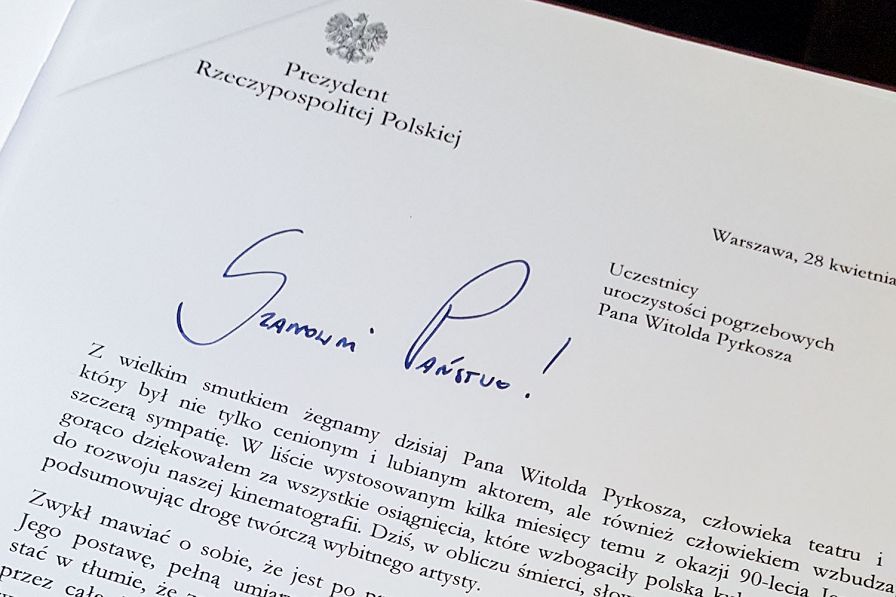 Prezydent
Rzeczypospolitej Polskiej
Warszawa, 28 kwietnia
Uczestnicy
uroczystości pogrzebowych
Pana Witolda Pyrkosza
Szanowni Państwo!
Z wielkim smutkiem żegnamy dzisiaj Pana Witolda Pyrkosza, człowieka teatru i
który był nie tylko cenionym i lubianym aktorem, ale również człowiekiem wzbudza
szczerą sympatię. W liście wystosowanym kilka miesięcy temu z okazji 90-lecia
gorąco dziękowałem za wszystkie osiągnięcia, które wzbogaciły polską
do rozwoju naszej kinematografii. Dziś, w obliczu śmierci,
podsumowując drogę twórczą wybitnego artysty.
Zwykł mawiać o sobie, że jest po
Jego postawę, pełną
stać w tłumie, że
przez